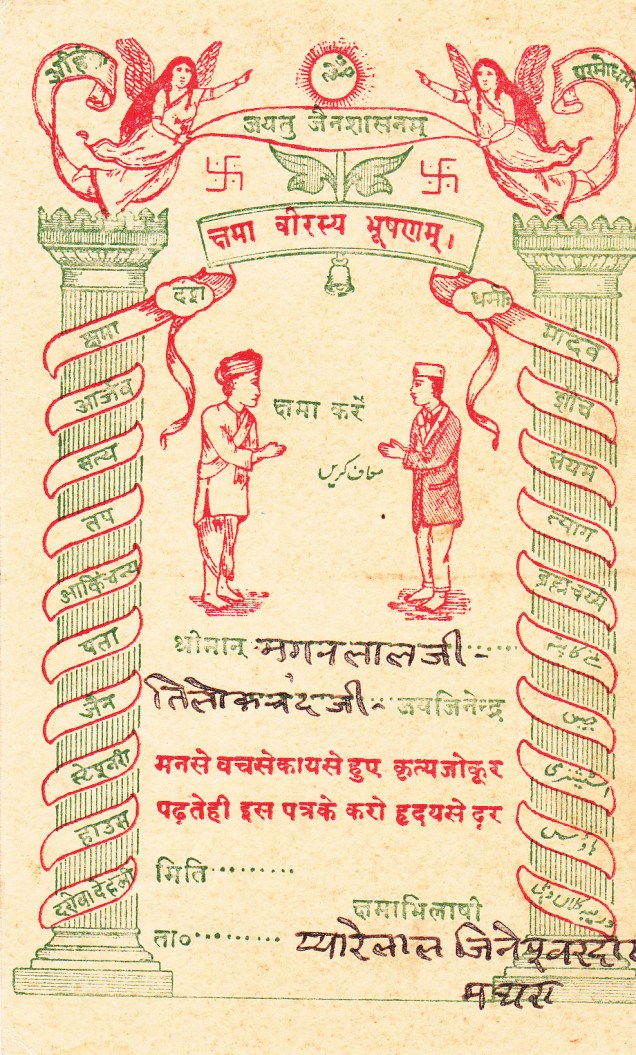 अहिंसा
परमोधर्मः
ॐ
जयतु जैनशासनम्
क्षमा वीरस्य भूषणम्।
दश
धर्मो
क्षमा
मार्दव
आर्जव
शौच
सत्य
संयम
तप
त्याग
आकिंचन्य
ब्रह्मचर्य्य
क्षमा करें
معاف کریں
पता
जैन
स्टेशनरी
हाउस
दरीबा देहली
جین
اسٹیشنری
ہاؤس
श्रीमान् मगनलालजी
तिलोकचंदजी जयजिनेन्द्र
मनसे वचसेकायसे हुए कृत्यजोकूर
पढ़तेही इस पत्रके करो हृदयसे दूर
मिति
क्षमाभिलाषी
ता० प्यारेलाल जिनेश्वरदा
मथरा